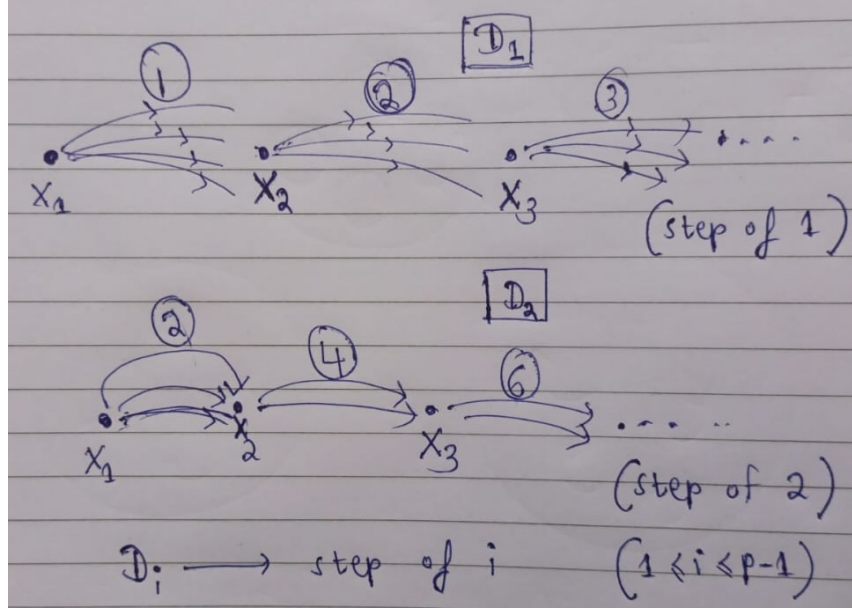 D₁
① ② ③
X₁ X₂ X₃ ....
(step of 1)
D₂
② ④ ⑥
X₁ X₂ X₃ ....
(step of 2)
Dᵢ → step of i (1 ≤ i ≤ p-1)